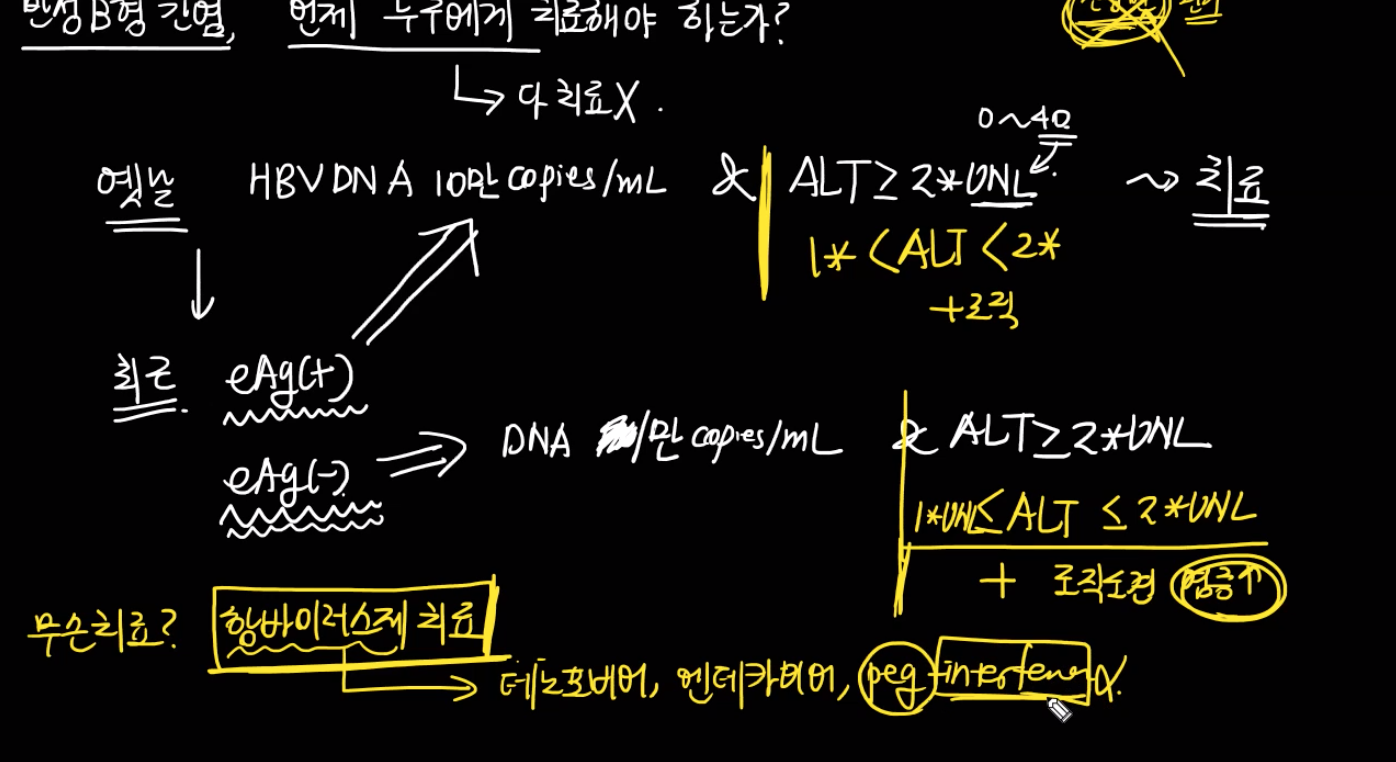 만성B형 간염, 언제 누구에게 치료해야 하는가?
↳ 다 치료X.
0~40
옛날 HBV DNA 10만 copies/mL & ALT ≥ 2*UNL ~> 치료
1* < ALT < 2*
+조직
최근. eAg(+)
eAg(-) ⇒ DNA 1만 copies/mL & ALT ≥ 2*UNL
1*UNL ≤ ALT ≤ 2*UNL
+ 조직소견 염증↑
무슨치료? 항바이러스제 치료
→ 테노포비어, 엔테카비어, peg interferon α.